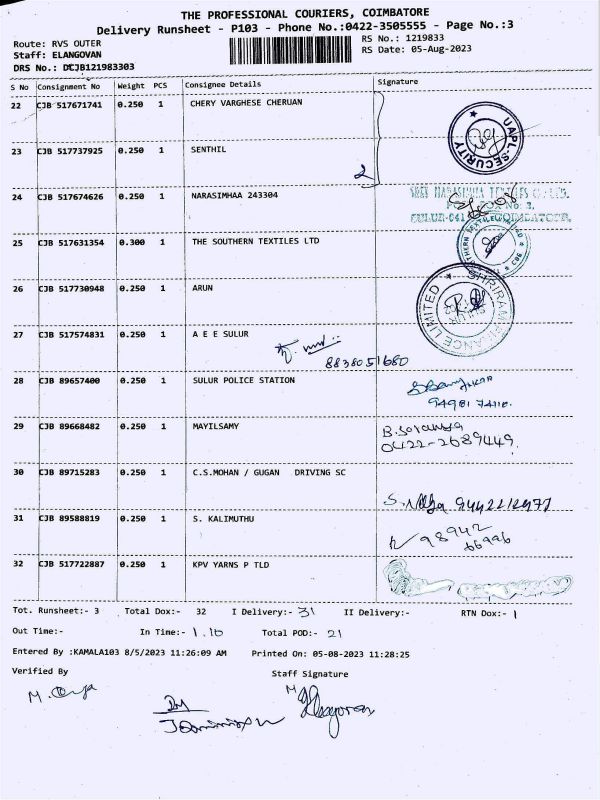 THE PROFESSIONAL COURIERS, COIMBATORE
Delivery Runsheet - P103 - Phone No.:0422-3505555 - Page No.:3
Route: RVS OUTER
RS No.: 1219833
Staff: ELANGOVAN
RS Date: 05-Aug-2023
DRS No.: DCJB121983303
S No Consignment No Weight PCS Consignee Details Signature
22 CJB 517671741 0.250 1 CHERY VARGHESE CHERUAN
UAPL-SECURITY
23 CJB 517737925 0.250 1 SENTHIL
2
24 CJB 517674626 0.250 1 NARASIMHAA 243304
25 CJB 517631354 0.300 1 THE SOUTHERN TEXTILES LTD
26 CJB 517730948 0.250 1 ARUN
SHRIRAM FINANCE LIMITED
27 CJB 517574831 0.250 1 A E E SULUR
8838051680
28 CJB 89657400 0.250 1 SULUR POLICE STATION
29 CJB 89668482 0.250 1 MAYILSAMY
0422-2689449
30 CJB 89715283 0.250 1 C.S.MOHAN / GUGAN DRIVING SC
31 CJB 89588819 0.250 1 S. KALIMUTHU
98942
66996
32 CJB 517722887 0.250 1 KPV YARNS P TLD
Tot. Runsheet:- 3 Total Dox:- 32 I Delivery:- 31 II Delivery:- RTN Dox:- 1
Out Time:- In Time:- 1.10 Total POD:- 21
Entered By :KAMALA103 8/5/2023 11:26:09 AM Printed On: 05-08-2023 11:28:25
Verified By Staff Signature